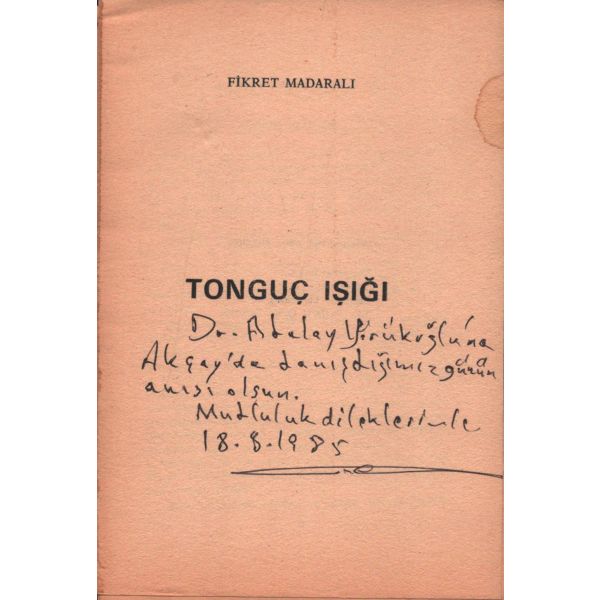 FİKRET MADARALI
TONGUÇ IŞIĞI
Dr. Atalay Yörükoğlu'na
Akçay'da tanışdığımız günün
anısı olsun.
Mutluluk dileklerimle
18.8.1985